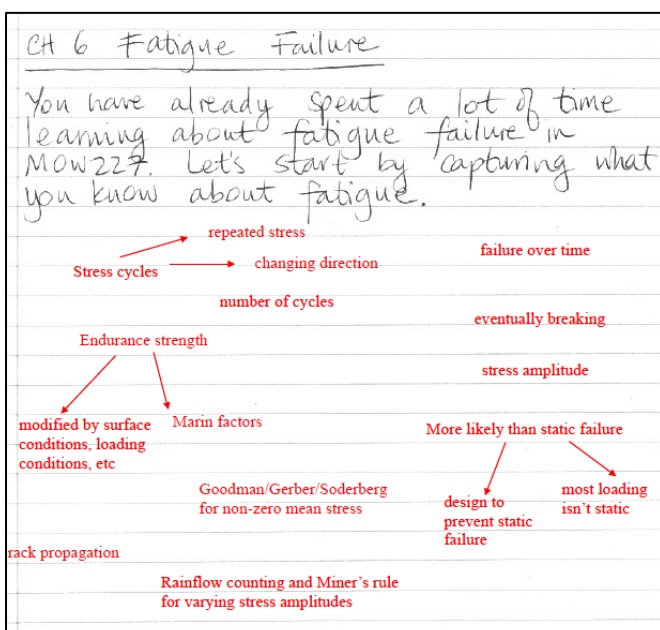 CH 6 Fatigue Failure
You have already spent a lot of time
learning about fatigue failure in
MOW227. Let's start by capturing what
you know about fatigue.
repeated stress
failure over time
Stress cycles
changing direction
number of cycles
eventually breaking
Endurance strength
stress amplitude
modified by surface
conditions, loading
conditions, etc
Marin factors
More likely than static failure
Goodman/Gerber/Soderberg
for non-zero mean stress
design to
prevent static
failure
most loading
isn't static
rack propagation
Rainflow counting and Miner's rule
for varying stress amplitudes